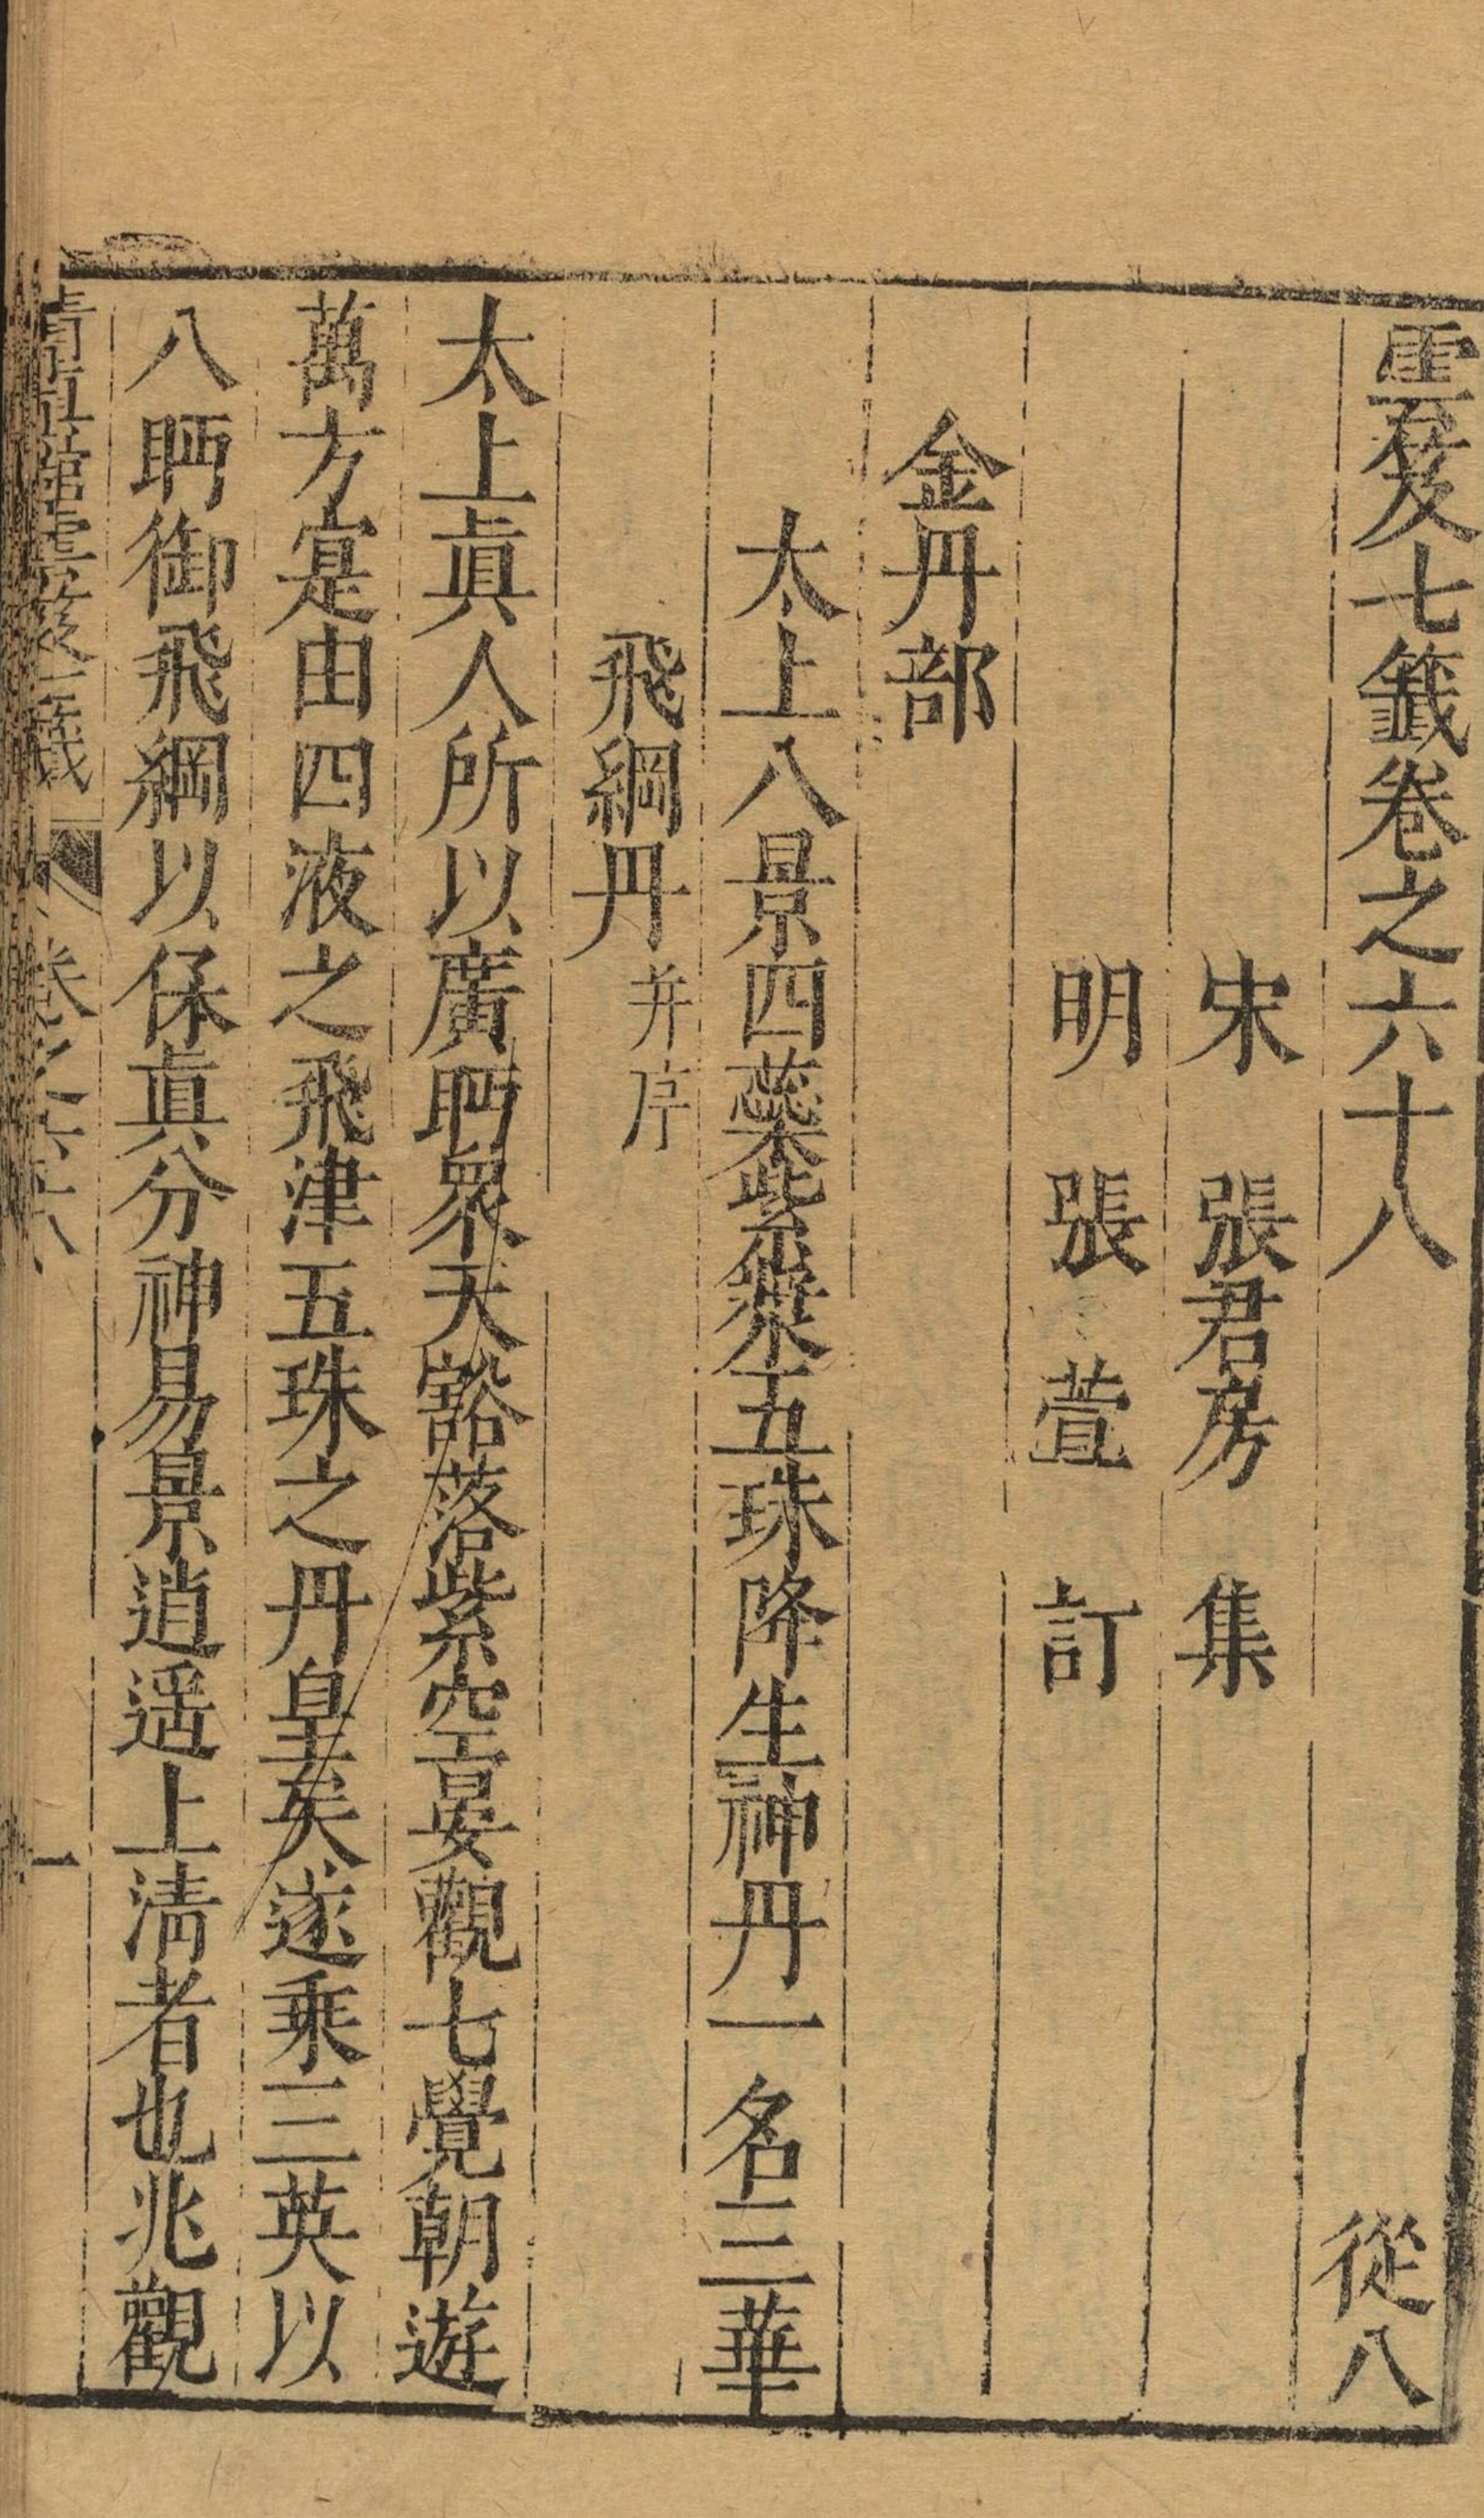 雲笈七籤卷之六十八 從八
宋 張君房 集
明 張 萱 訂
金丹部
太上八景四蘂紫漿五珠降生神丹一名三華
飛綱丹并序
太上眞人所以廣眄衆天豁落紫空晏觀七覺朝遊
萬方寔由四液之飛津五珠之丹皇矣遂乘三英以
八眄御飛綱以保眞分神易景逍遥上清者也兆觀
清眞館雲笈七籤 卷之六十八 一